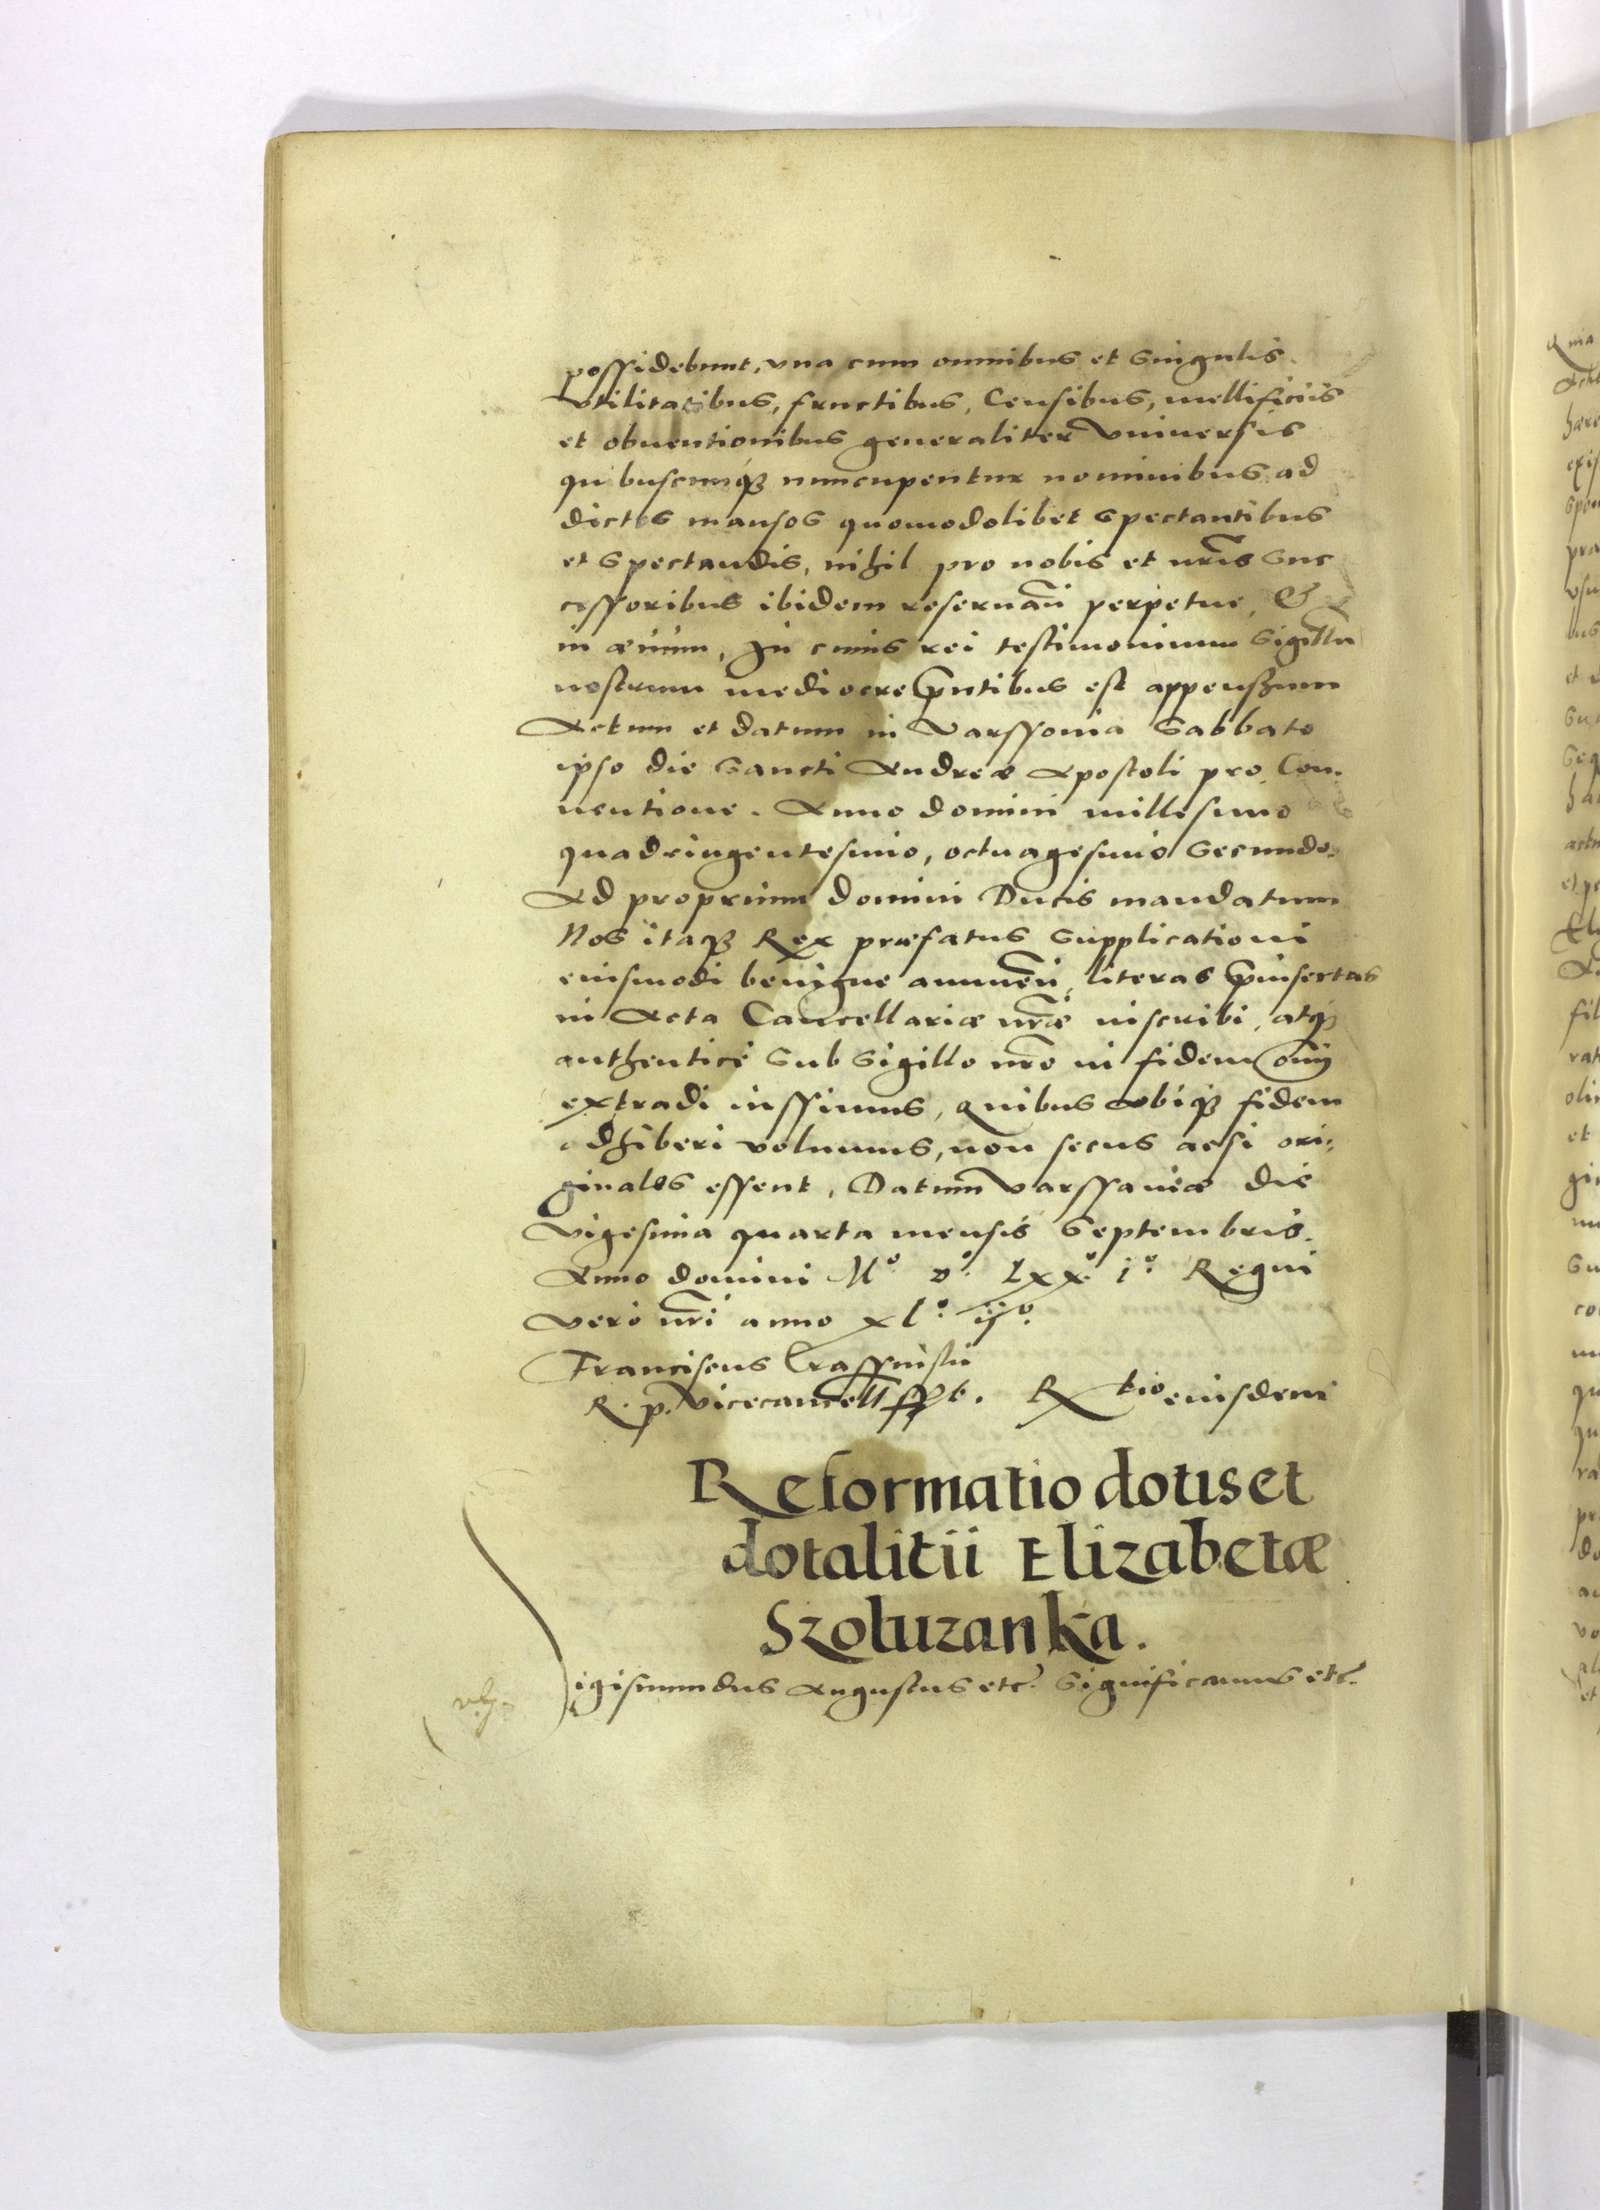 possidebunt, vna cum omnibus et singulis
vtilitatibus, fructibus, Censibus, mellificiis
et obuentionibus generaliter vniuersis
quibuscunqz nuncupentur nominibus ad
dictos mansos quomodolibet spectantibus
et spectandis, nihil pro nobis et nr̃is suc
cessoribus ibidem reseruañ perpetue, &
in æuum, In cuius rei testimonium sigillũ
nostrum mediocre pñtibus est appensum
Actum et datum in Varssouia Sabbato
ipso die Sancti Andreæ Apostoli pro Con-
uentione. Anno domini millesimo
quadringentesimo, octuagesimo secundo.
Ad proprium domini Ducis mandatum
Nos itaqz Rex præfatus supplicationi
eiusmodi benigne annueñ, literas p̃insertas
in Acta Cancellariæ nr̃æ inscribi, atqz
authentice sub sigillo nr̃o in fidem om̃
extradi iussimus, quibus vbiqz fidem
adhiberi volumus, non secus acsi ori-
ginales essent, Datum Varssauiæ die
vigesima quarta mensis Septembris.
Anno domini Mº. Dº. Lxxº. iº. Regni
vero nr̃i anno xlº. ijº.
Franciscus Crassinski
R. p. Vicecancell sspt. Rtio eiusdem
Reformatio dotis et
dotalitii Elizabetæ
Szoluzanka.
Sigismundus Augustus etc. Significamus etc.